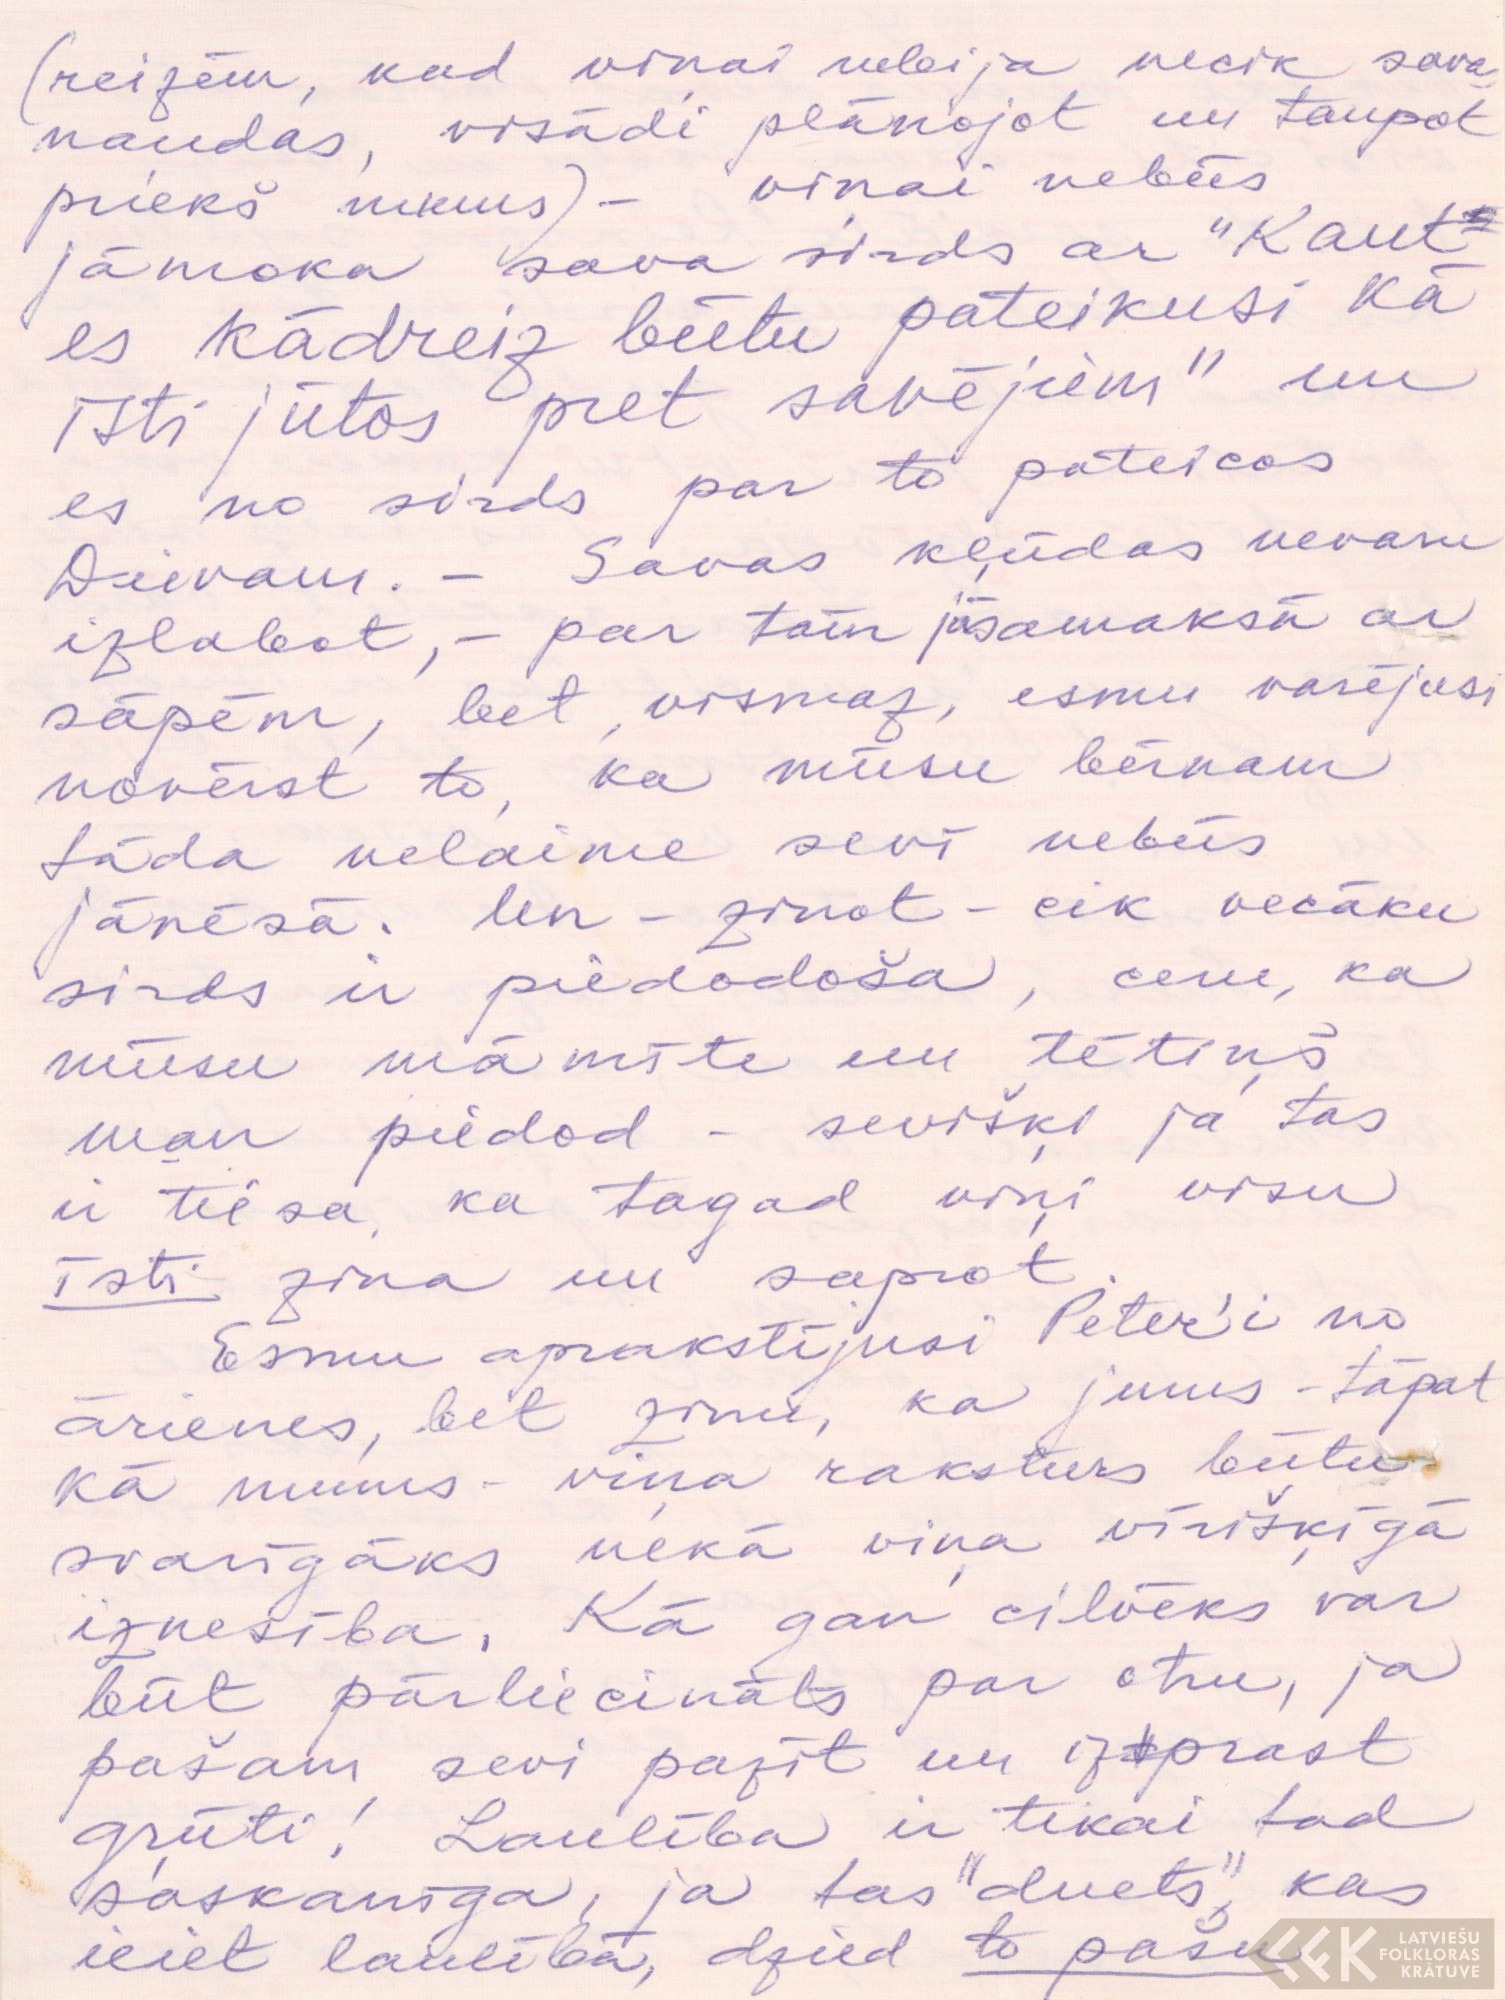 (reizēm, kad viņai nebija necik sava
naudas, visādi plānojot un taupot
priekš mums) - viņai nebūs
jāmoka sava sirds ar "Kaut
es kādreiz būtu pateikusi kā
īsti jūtos pret savējiem" un
es no sirds par to pateicos
Dievam. - Savas kļūdas nevaru
izlabot, - par tām jāsamaksā ar
sāpēm, bet, vismaz, esmu varējusi
novērst to, ka mūsu bērnam
tāda nelaime sevī nebūs
jānēsā. Un - zinot - cik vecāku
sirds ir piedodoša, ceru, ka
mūsu māmīte un tētiņš
man piedod - sevišķi ja tas
ir tiesa, ka tagad viņi visu
īsti zina un saprot.
Esmu aprakstījusi Peter'i no
ārienes, bet zinu, ka jums - tāpat
kā mums - viņa raksturs būtu
svarīgāks nekā viņa vīrišķīgā
iznesība. Kā gan cilvēks var
būt pārliecināts par otru, ja
pašam sevi pazīt un izprast
grūti! Laulība ir tikai tad
saskanīga, ja tas "duets", kas
ieiet laulībā, dzied to pašu
LATVIEŠU
FOLKLORAS
KRĀTUVE